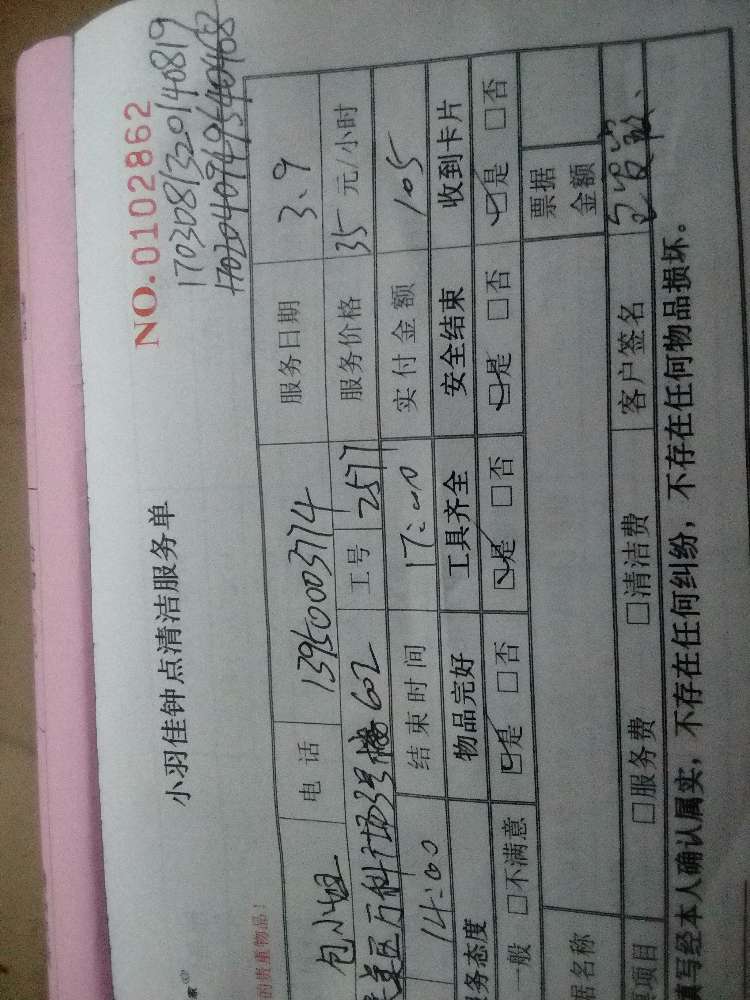 NO.0102862
170308132014081９
小羽佳钟点清洁服务单
的贵重物品！
包小姐 电话 13950003774 服务日期 3、9
万科广场3号楼602 工号 2577 服务价格 35元/小时
14:00 结束时间 17:00 实付金额 105
务态度 物品完好 工具齐全 安全结束 收到卡片
一般 □不满意 ☑是 □否 ☑是 □否 ☑是 □否 ☑是 □否
据名称 票据金额
项目 □服务费 □清洁费 客户签名
填写经本人确认属实，不存在任何纠纷，不存在任何物品损坏。